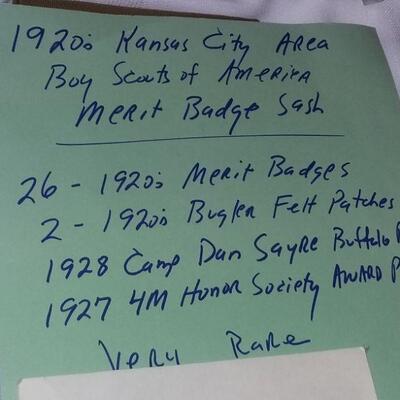 1920s Kansas City Area
Boy Scouts of America
Merit Badge Sash
26 - 1920s Merit Badges
2 - 1920s Bugler Felt Patches
1928 Camp Dan Sayre Buffalo
1927 4M Honor Society AWARD P
Very Rare